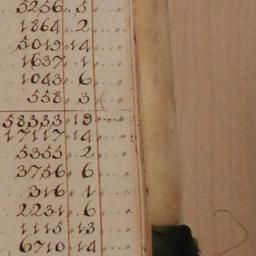 5256 . 5 . "
1864 . 2 . "
5019 . 14 . "
1637 . 1 . "
1043 . 6 . "
558 . 3
58333 . 19 . "
17117 . 14 . "
5355 . 2 . "
3756 . 6 . "
316 . 1 . "
2231 . 6 . "
1115 . 13 . "
6710 . 14 . "